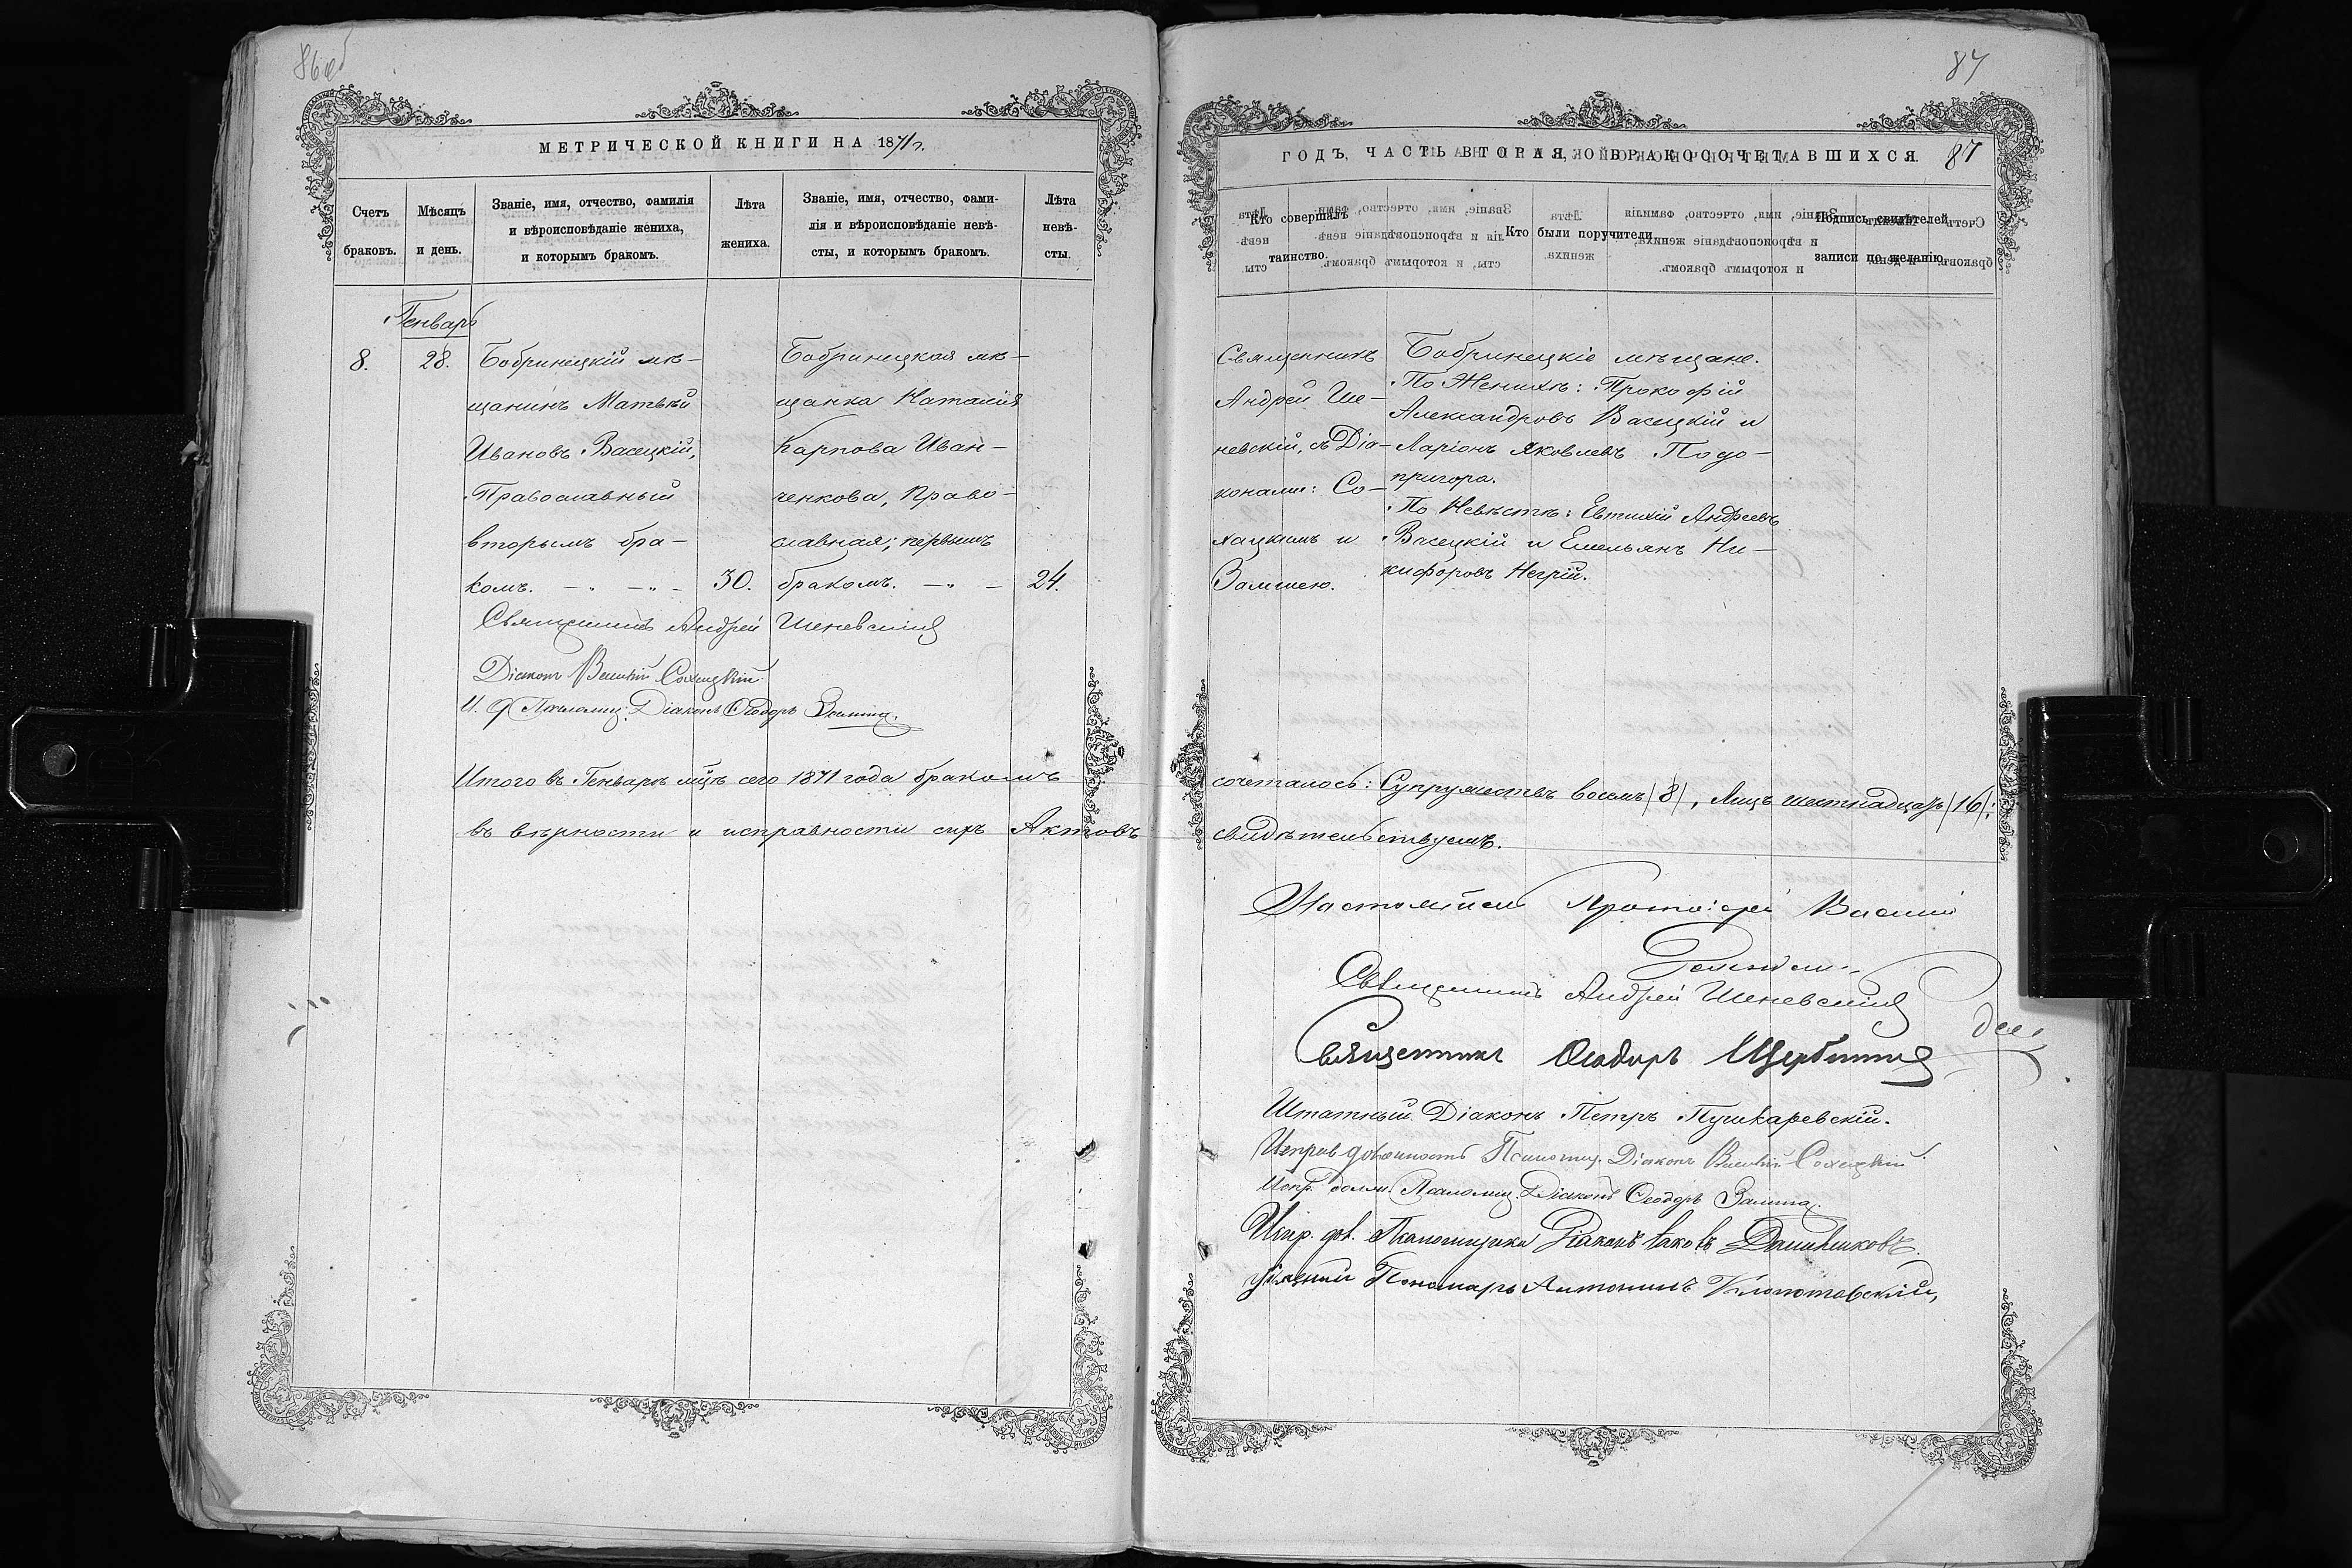 86об
МЕТРИЧЕСКОЙ КНИГИ НА 1871 г.
Счетъ браковъ.
Мѣсяцъ и день.
Званіе, имя, отчество, фамилія и вѣроисповѣданіе жениха, и которымъ бракомъ.
Лѣта жениха.
Званіе, имя, отчество, фами-
лія и вѣроисповѣданіе невѣ-
сты, и которымъ бракомъ.
Лѣта невѣ-
сты.
Генварь
8.
28.
Бобринецкій мѣ-
щанинъ Матвѣй
Ивановъ Васецкій,
Православный
вторымъ бра-
комъ.
30.
Бобринецкая мѣ-
щанка Наталія
Карпова Иван-
ченкова, Право-
славная; первымъ
бракомъ.
24.
Священникъ Андрей Шеневскій
Діаконъ Василій Сохацкій
И. д. Псаломщ. Діаконъ Ѳеодоръ
Итого въ Генварѣ мцѣ сего 1871 года бракомъ
въ вѣрности и исправности сихъ Актовъ
87
ГОДЪ, ЧАСТЬ ВТОРАЯ, О БРАКОСОЧЕТАВШИХСЯ. 87
Кто совершалъ таинство.
Кто были поручители.
Подпись свидѣтелей записи по желанію.
Священникъ
Андрей Ше-
невскій, съ Діа-
конами: Со-
хацкимъ и
Бобринецкіе мѣщане.
По Женихѣ: Прокофій
Александровъ Васецкій и
Ларіонъ Яковлевъ Подо-
пригора.
По Невѣстѣ: Евтихій Андреевъ
Васецкій и Емельянъ Ни-
кифоровъ Негрій.
сочеталось: Супружествъ восемь (8), Лицъ шестнадцать (16);
свидѣтельствуемъ.
Настоятель Протоіерей Василій
Священникъ Андрей Шеневскій
Священникъ Ѳеодоръ Щербина
Штатный Діаконъ Петръ Пушкаревскій.
Исправ. должность Псаломщ. Діаконъ Василій Сохацкій
Испр. долж. Псаломщ. Діаконъ Ѳеодоръ
Испр. дол. Псаломщика Діаконъ Іаковъ
Пономарь Антонинъ Клопотовскій,